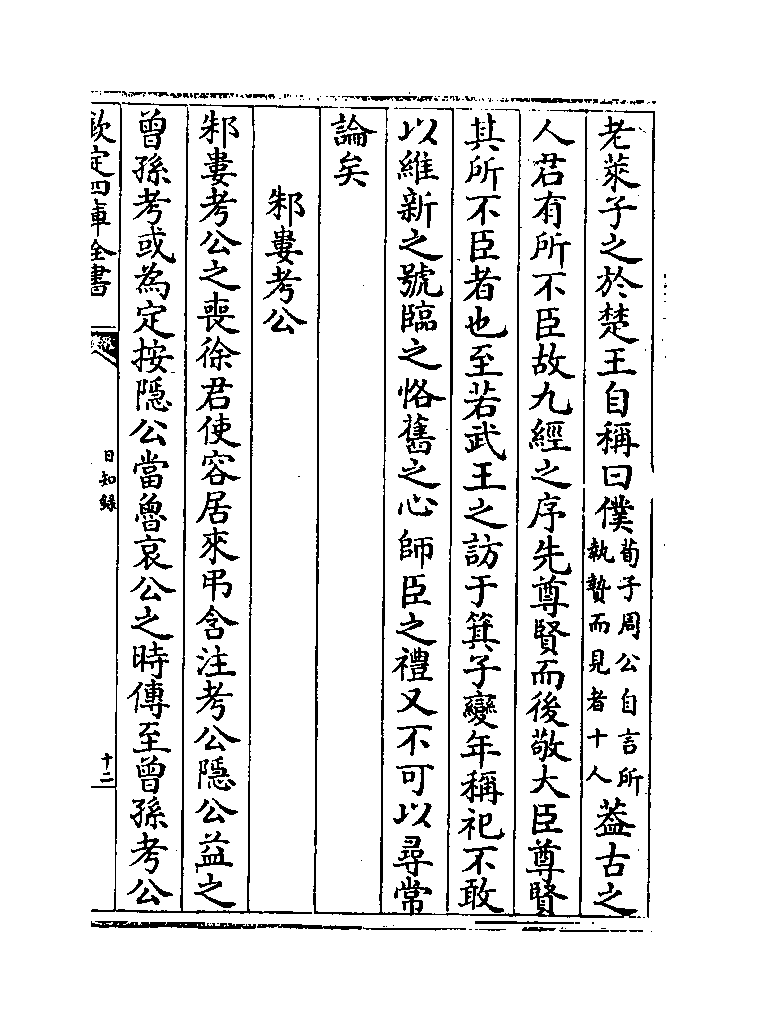 老萊子之於楚王自稱曰僕荀子周公自言所執贄而見者十人葢古之
人君有所不臣故九經之序先尊賢而後敬大臣尊賢
其所不臣者也至若武王之訪于箕子變年稱祀不敢
以維新之號臨之恪舊之心師臣之禮又不可以尋常
論矣
邾婁考公
邾婁考公之喪徐君使容居來弔含注考公隠公益之
曾孫考或為定按隠公當魯哀公之時傳至曾孫考公
欽定四庫全書
日知錄
十二